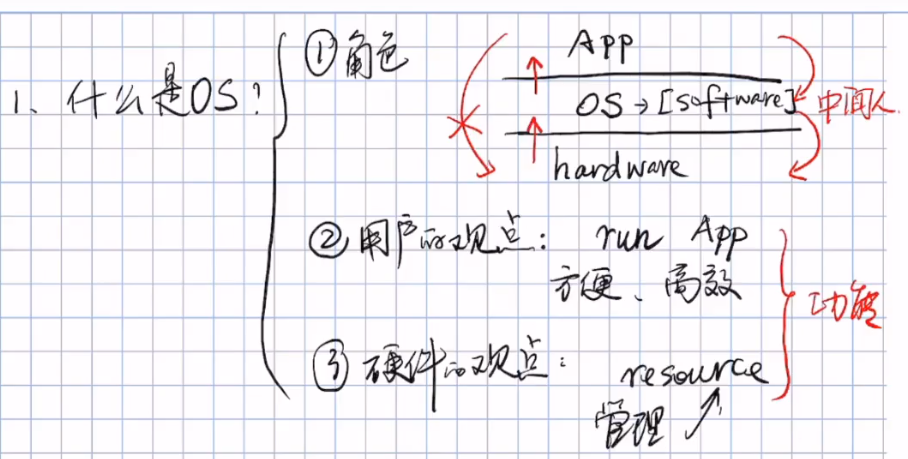 1、什么是OS?
① 角色
App
OS → [software] 中间人
hardware
② 用户的观点: run App
方便、高效
功能
③ 硬件的观点: resource
管理